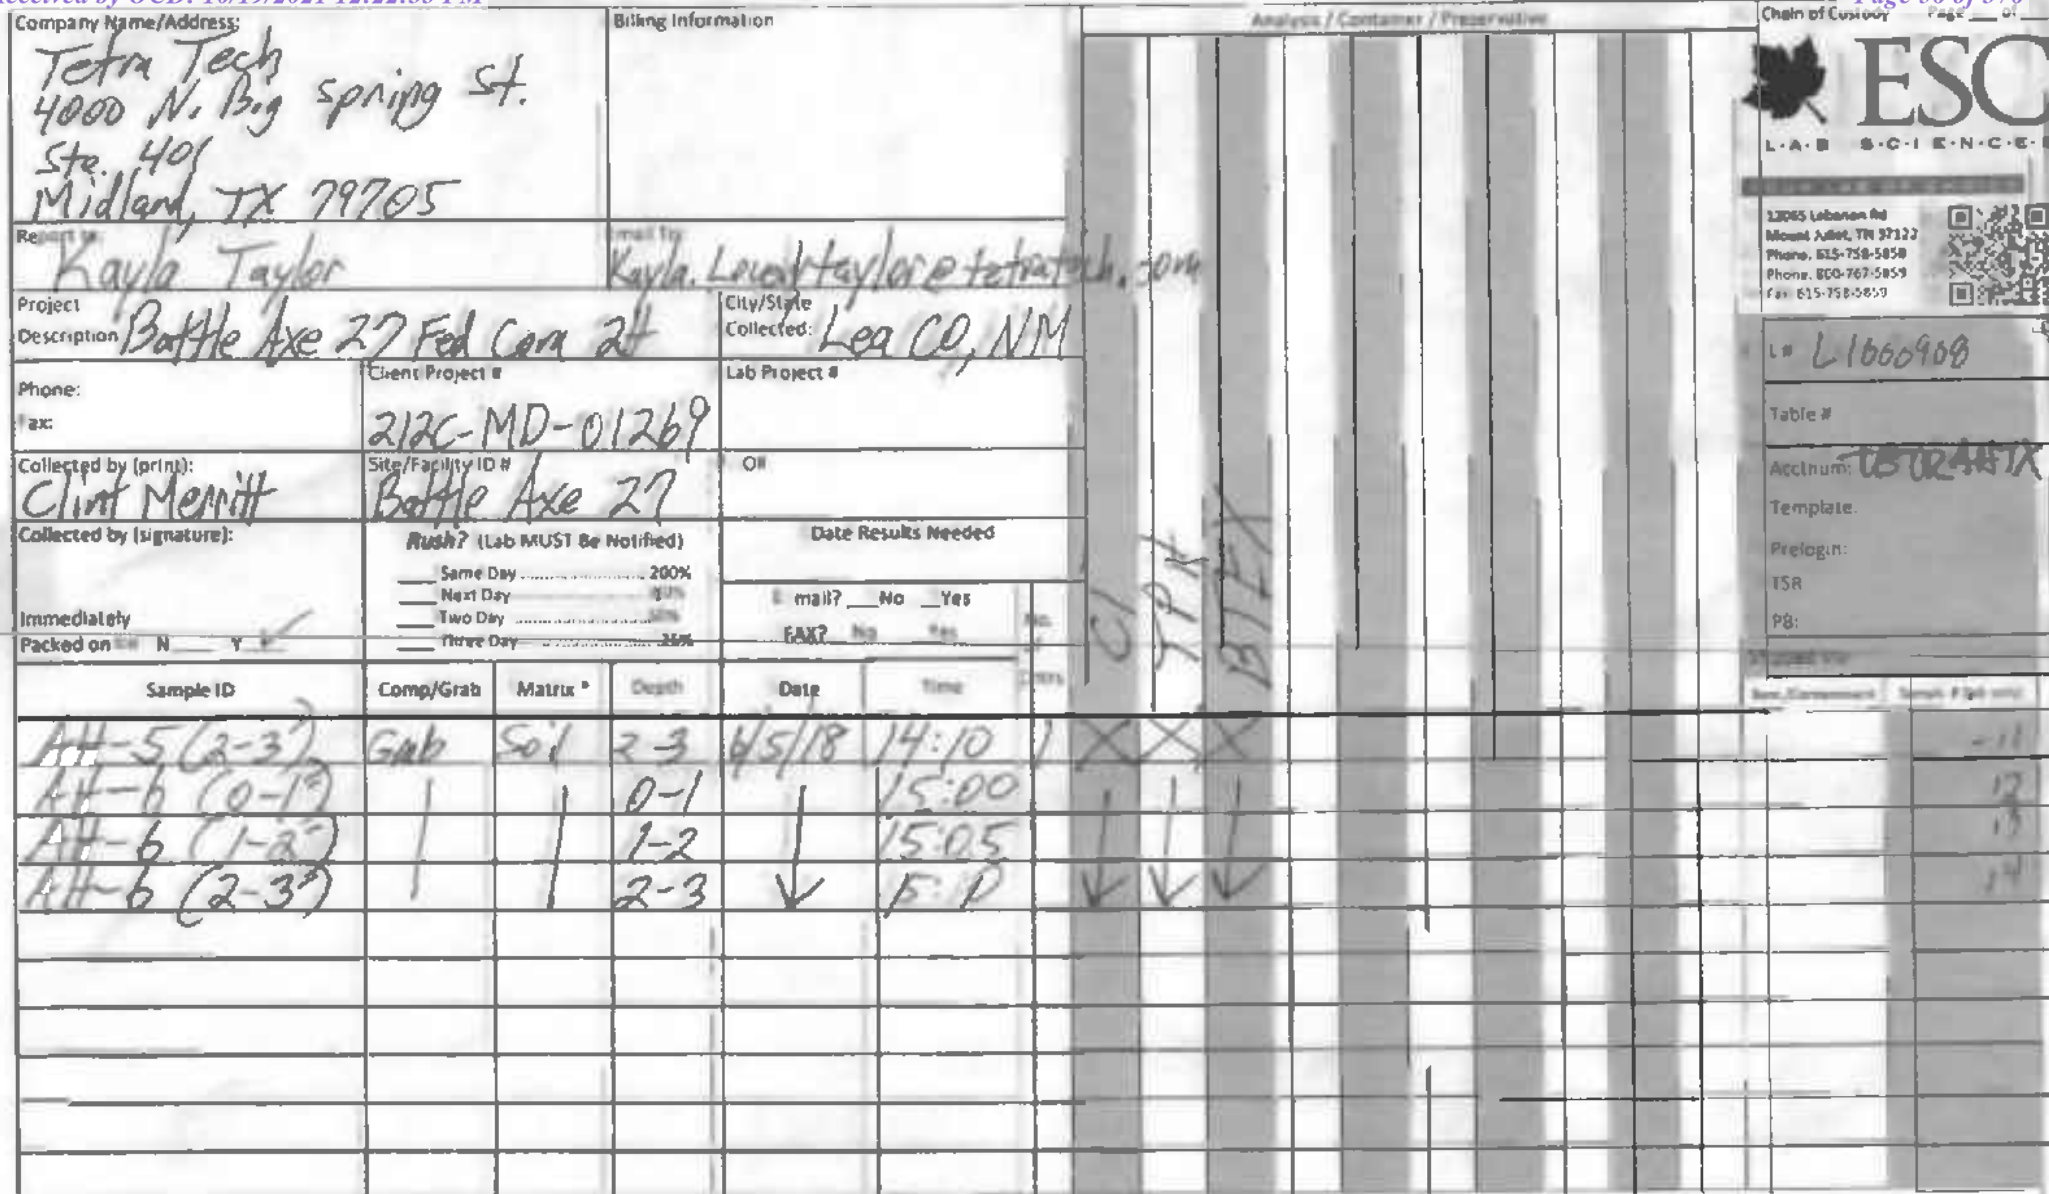 Received by OCD: 10/19/2021 12:22:55 PM
Company Name/Address:
Tetra Tech
4000 N. Big Spring St.
Ste. 401
Midland, TX 79705
Billing Information
Analysis / Container / Preservative
Chain of Custody Page ___ of ___
ESC
L·A·B S·C·I·E·N·C·E·S
12065 Lebanon Rd
Mount Juliet, TN 37122
Phone: 615-758-5858
Phone: 800-767-5859
Fax: 615-758-5859
Report to:
Kayla Taylor
Email To:
Project
Description Battle Axe 27 Fed Com 2H
City/State
Collected: Lea CO, NM
L# L1000908
Phone:
Fax:
Client Project #
212C-MD-01269
Lab Project #
Table #
Collected by (print):
Clint Merritt
Site/Facility ID #
Battle Axe 27
O#
Acctnum:
Template:
Prelogin:
TSR
PB:
Collected by (signature):
Rush? (Lab MUST Be Notified)
Same Day 200%
Next Day
Two Day
Three Day 25%
Date Results Needed
Email? __No __Yes
FAX? No Yes
No.
of
Cntrs
Cl
TPH
BTEX
Immediately
Packed on N ___ Y ✓
Shipped Via:
Sample ID Comp/Grab Matrix * Depth Date Time
AH-5 (2-3') Grab Soil 2-3 6/5/18 14:10 1 X X X -11
AH-6 (0-1') 0-1 15:00 12
AH-6 (1-2') 1-2 15:05 13
AH-6 (2-3') 2-3 15:10 14